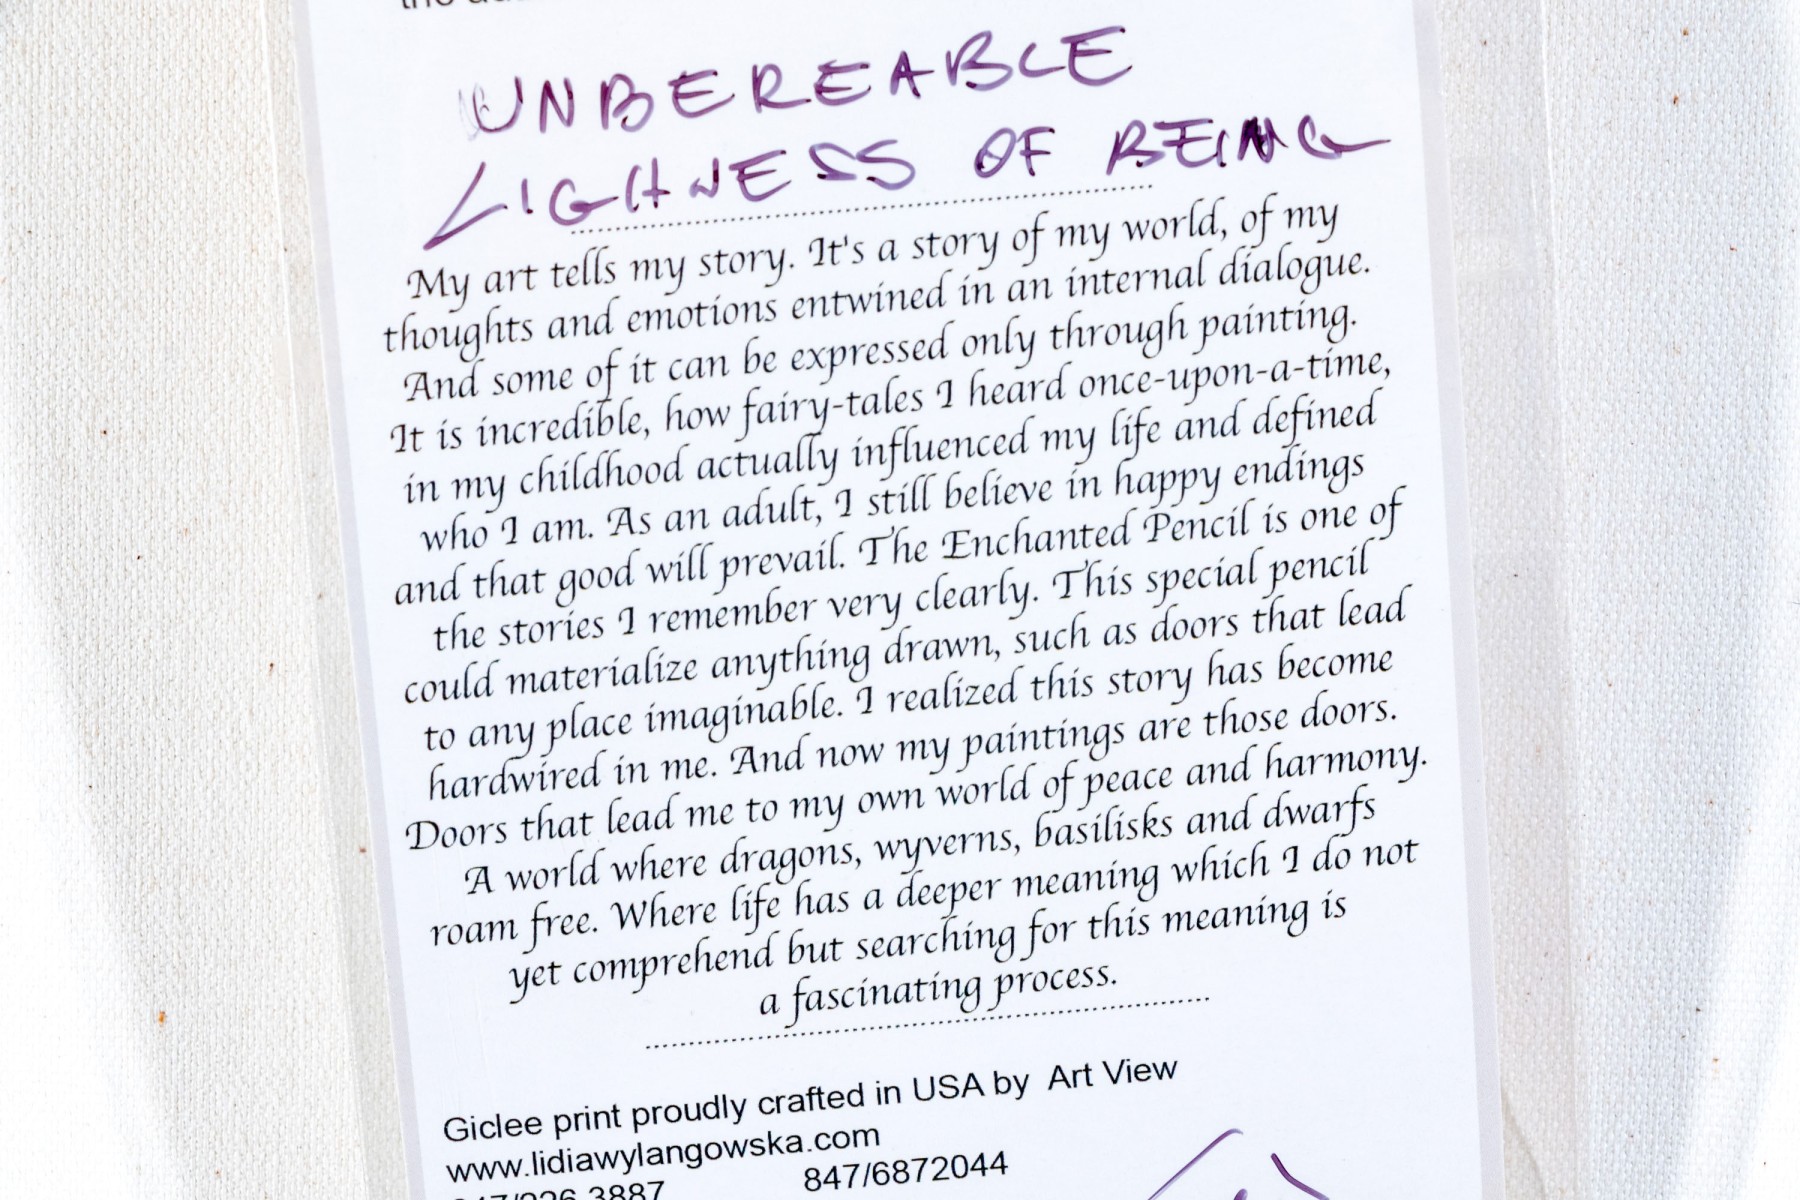 UNBEREABLE
LIGHNESS OF BEING
My art tells my story. It's a story of my world, of my
thoughts and emotions entwined in an internal dialogue.
And some of it can be expressed only through painting.
It is incredible, how fairy-tales I heard once-upon-a-time,
in my childhood actually influenced my life and defined
who I am. As an adult, I still believe in happy endings
and that good will prevail. The Enchanted Pencil is one of
the stories I remember very clearly. This special pencil
could materialize anything drawn, such as doors that lead
to any place imaginable. I realized this story has become
hardwired in me. And now my paintings are those doors.
Doors that lead me to my own world of peace and harmony.
A world where dragons, wyverns, basilisks and dwarfs
roam free. Where life has a deeper meaning which I do not
yet comprehend but searching for this meaning is
a fascinating process.
Giclee print proudly crafted in USA by Art View
www.lidiawylangowska.com
3887 847/6872044